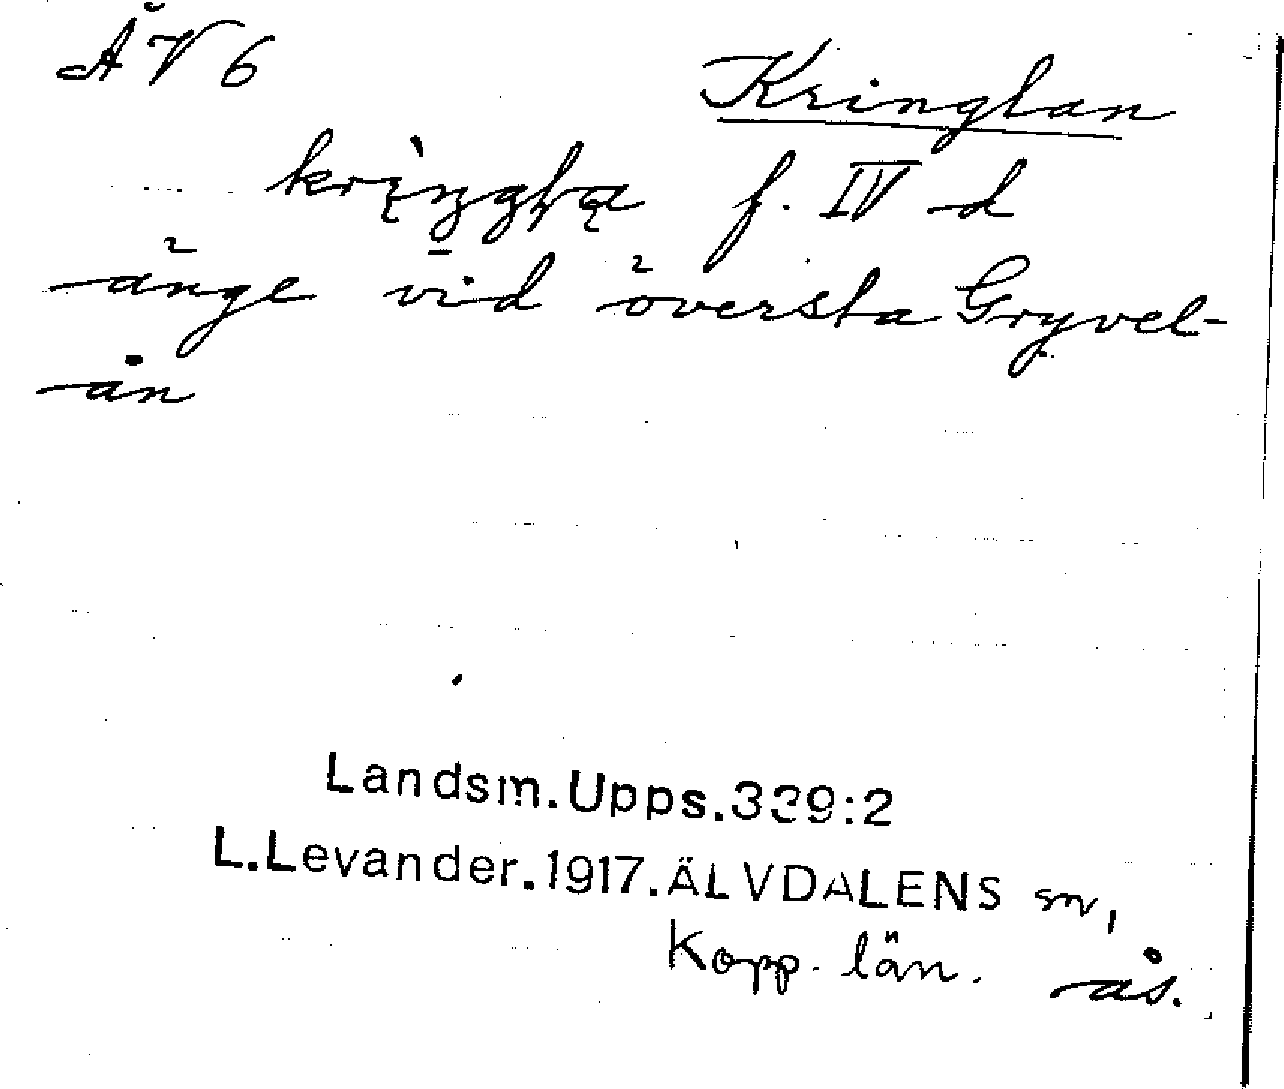 ÅV6
Kringlan
f. IV d
änge vid översta Gryvel-
ån
Landsm.Upps.339:2
L.Levander.1917.ÄLVDALENS sn,
Kopp. län. ås.